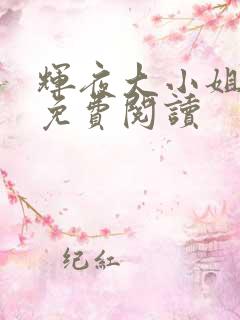 輝夜大小姐
免費閱讀
纪紅